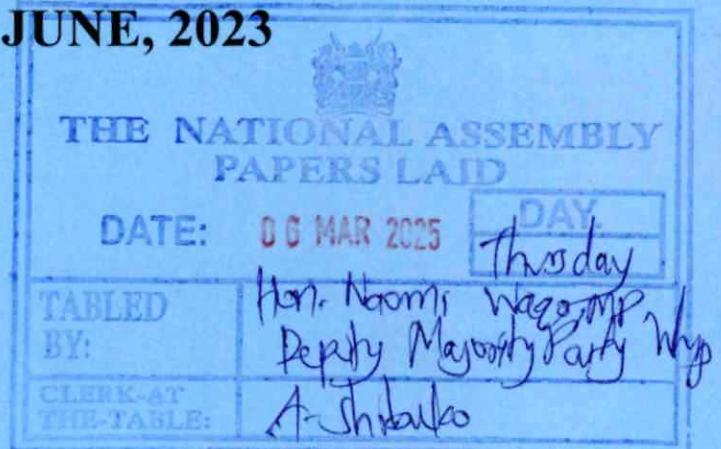 JUNE, 2023
THE NATIONAL ASSEMBLY
PAPERS LAID
DATE: 06 MAR 2025 DAY
Thursday
TABLED BY: Hon. Naomi Waqo, MP
Deputy Majority Party Whip
CLERK-AT
THE-TABLE: